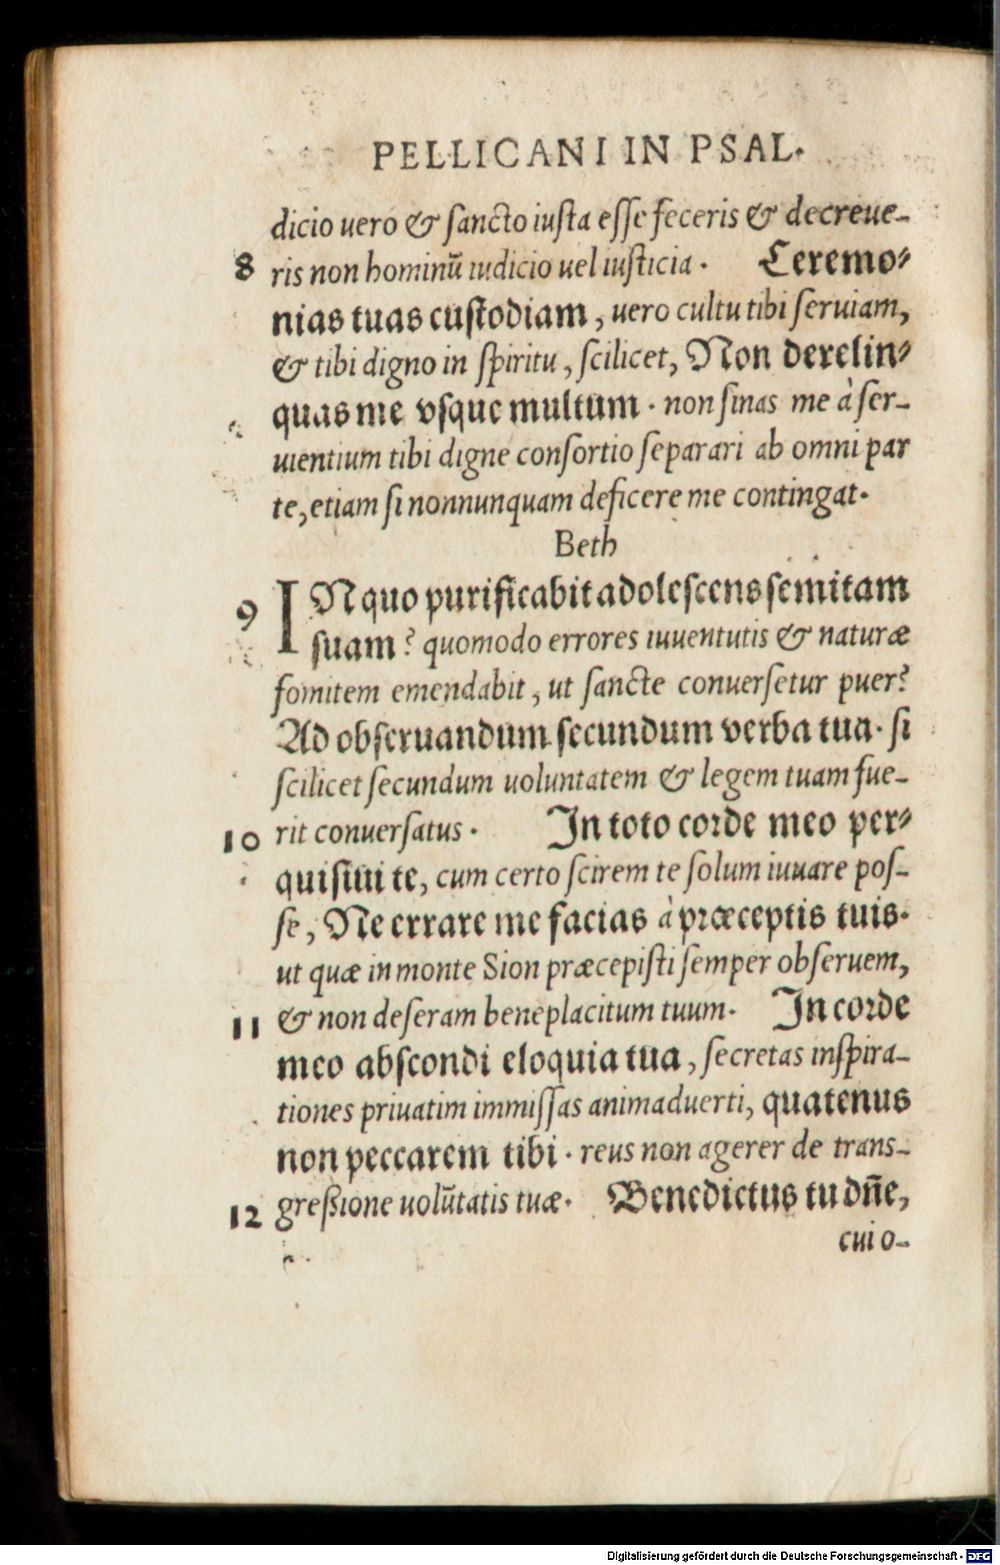 PELLICANI IN PSAL.
dicio uero & ſancto iuſta eſſe feceris & decreue-
8 ris non hominū iudicio uel iuſticia. Ceremo-
nias tuas cuſtodiam, uero cultu tibi ſeruiam,
& tibi digno in ſpiritu, ſcilicet, Non derelin-
quas me vſque multum. non ſinas me à ſer-
uientium tibi digne conſortio ſeparari ab omni par
te, etiam ſi nonnunquam deficere me contingat.
Beth
9 IN quo purificabit adoleſcens ſemitam
ſuam? quomodo errores iuuentutis & naturæ
fomitem emendabit, ut ſancte conuerſetur puer?
Ad obſeruandum ſecundum verba tua. ſi
ſcilicet ſecundum uoluntatem & legem tuam fue-
10 rit conuerſatus. In toto corde meo per-
quiſiui te, cum certo ſcirem te ſolum iuuare poſ-
ſe, Ne errare me facias à præceptis tuis.
ut quæ in monte Sion præcepiſti ſemper obſeruem,
11 & non deſeram beneplacitum tuum. In corde
meo abſcondi eloquia tua, ſecretas inſpira-
tiones priuatim immiſſas animaduerti, quatenus
non peccarem tibi. reus non agerer de trans-
12 greſsione uolūtatis tuæ. Benedictus tu dn̄e,
cui o-
Digitalisierung gefördert durch die Deutsche Forschungsgemeinschaft - DFG